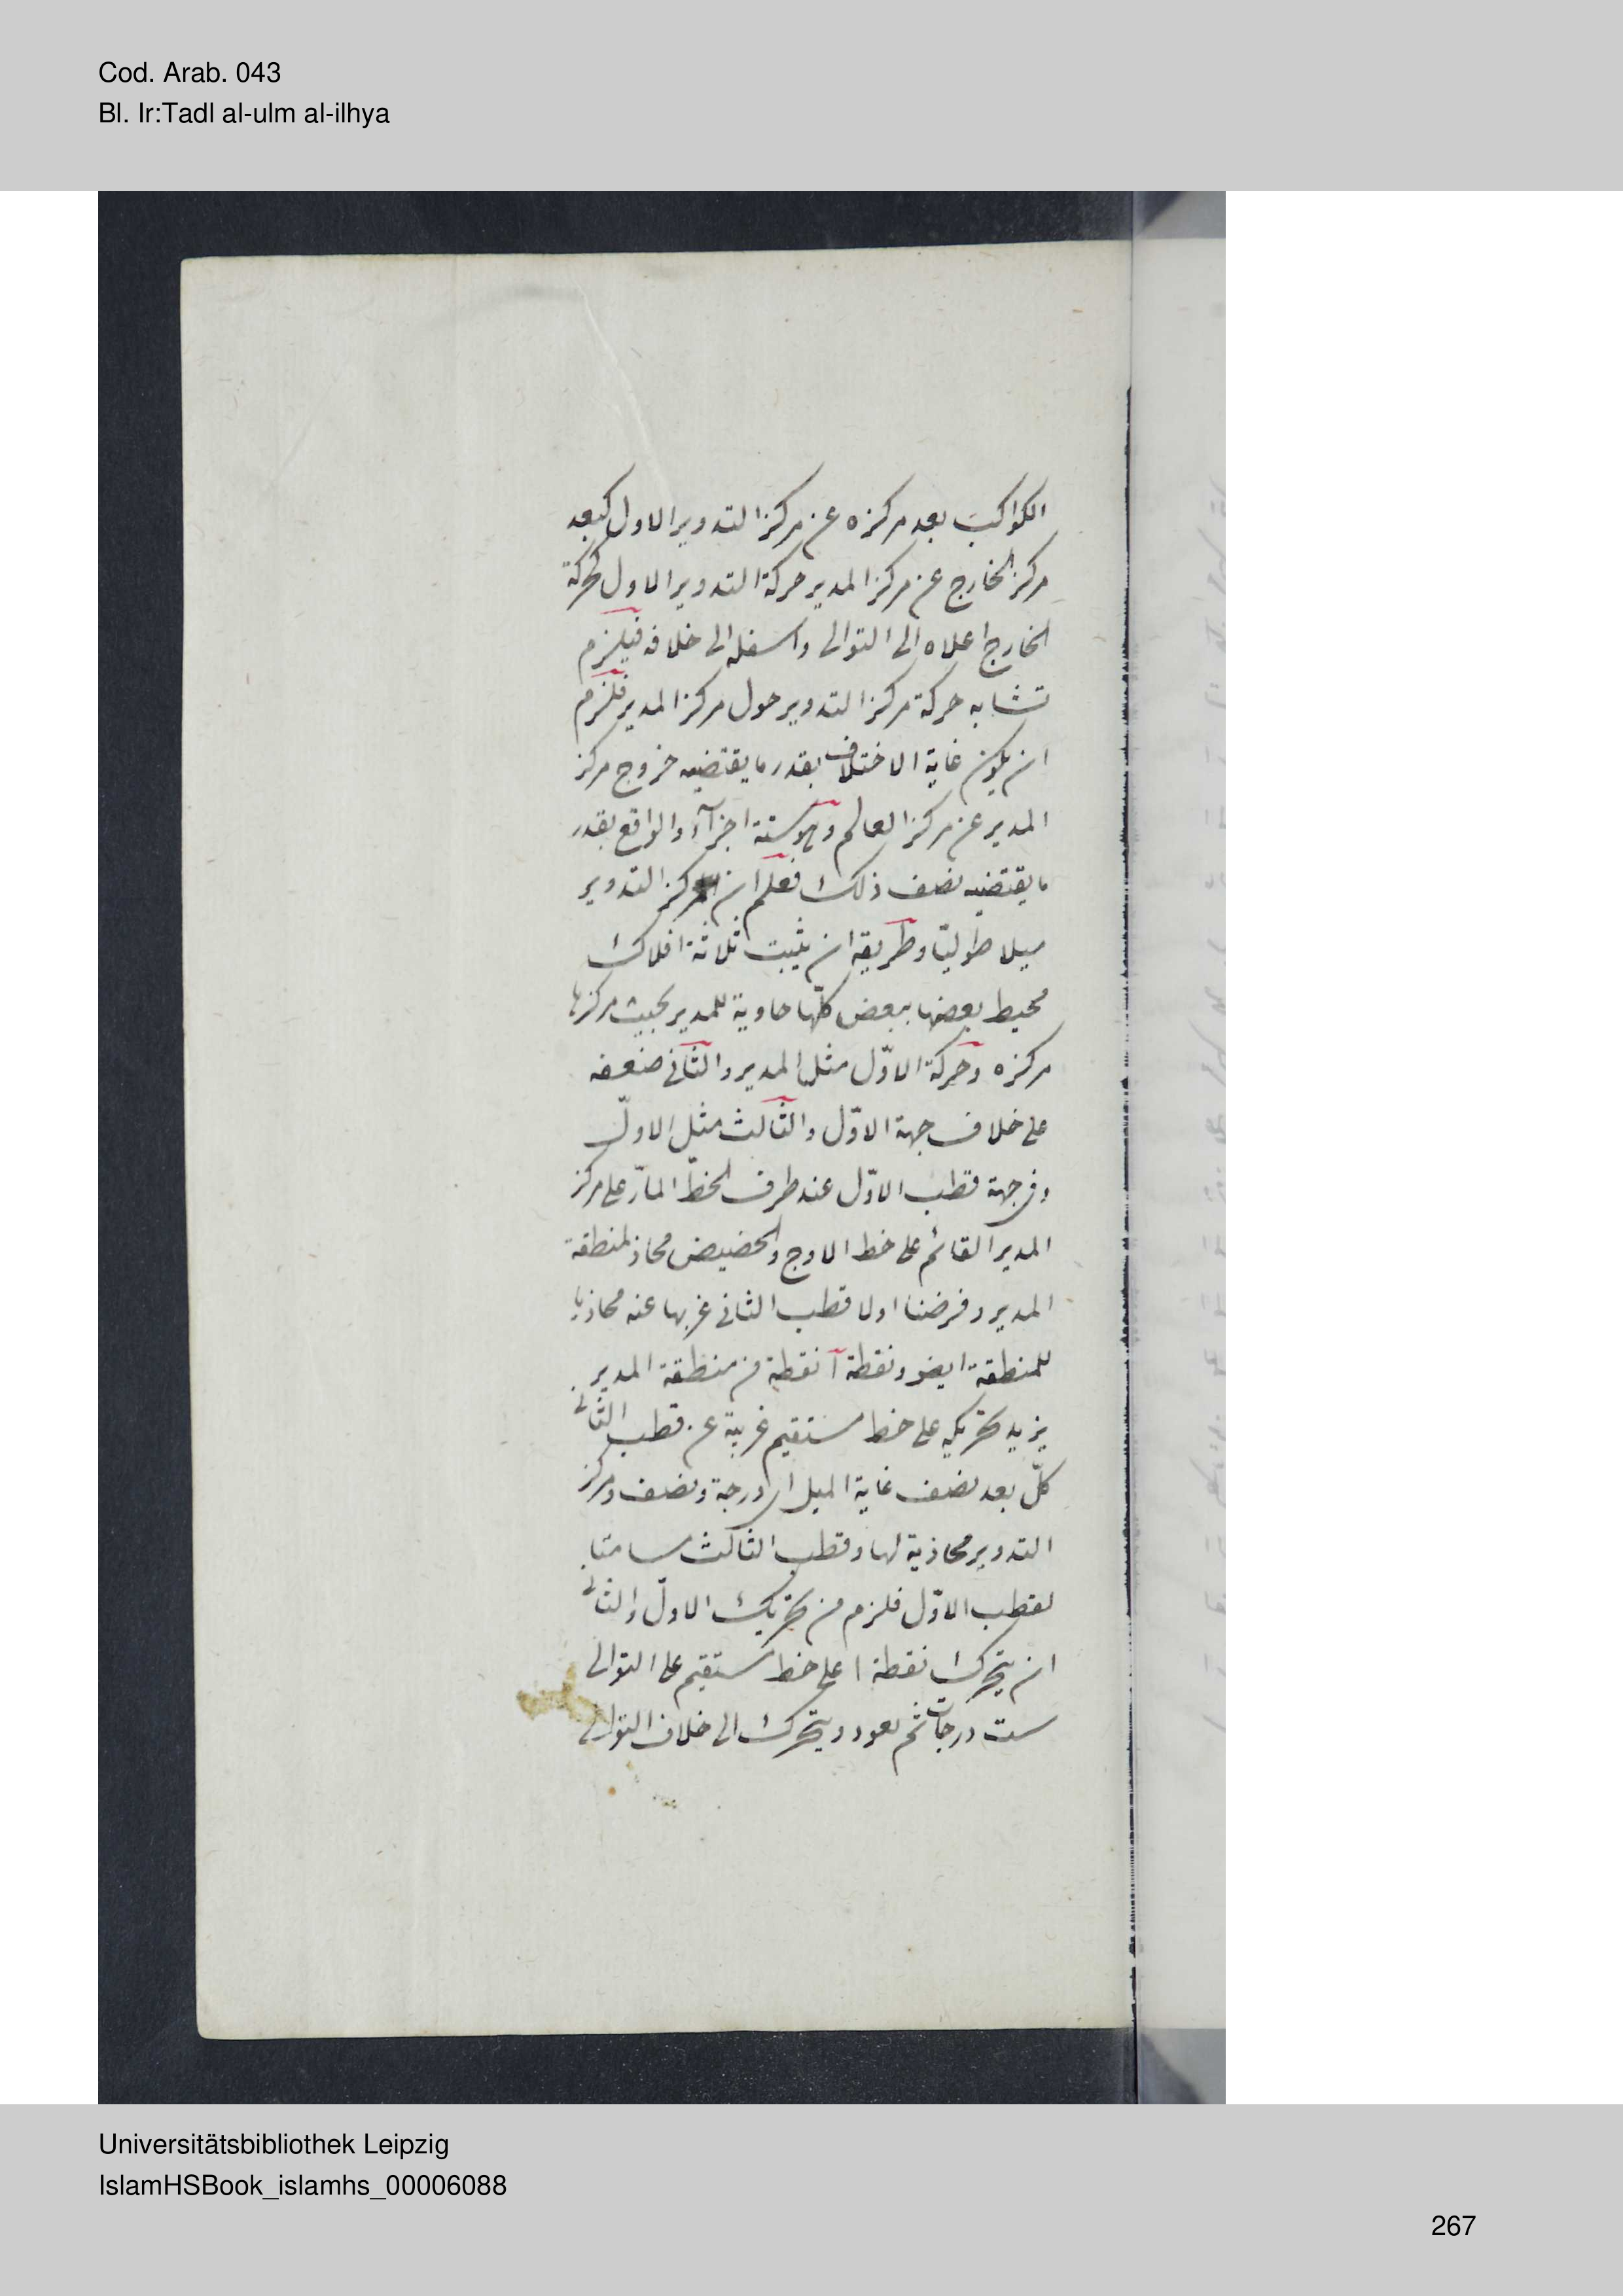 Cod. Arab. 043
Bl. Ir:Tadl al-ulm al-ilhya
الكواكب بعد مركزه عن مركز التدوير الاول كبعد
مركز الخارج عن مركز المدير حركة التدوير الاول كحركة
الخارج اعلاه الى التوالى واسفله الى خلافه فيلزم
تشابه حركة مركز التدوير حول مركز المدير فلزم
ان يكون غاية الاختلاف بقدر ما يقتضيه خروج مركز
المدير عن مركز العالم وهو ستة اجزآء والواقع بقدر
ما يقتضيه نصف ذلك فعلم ان لمركز التدوير
ميلا طوليّا وطريقه ان يثبت ثلاثة افلاك
محيط بعضها ببعض كلّها حاوية للمدير بحيث مركزها
مركزه وحركة الاوّل مثل المدير والثانى ضعفه
على خلاف جهة الاوّل والثالث مثل الاوّل
وفى جهة قطب الاوّل عند طرف الخطّ المارّ على مركز
المدير القائم على خط الاوج والحضيض محاذ لمنطقة
المدير وفرضنا اولا قطب الثانى غربها عنه محاذيا
للمنطقة ايضو ونقطة آ نقطة من منطقة المدير
يزيد تحريكه على خط مستقيم غربية عن قطب الثانى
كلّ بعد نصف غاية الميل اى درجة ونصف ومركز
التدوير محاذية لها وقطب الثالث مسامتا
لقطب الاوّل فلزم من تحريك الاول والثانى
ان يتحرك نقطة ا على خط مستقيم على التوالى
ست درجات ثم يعود ويتحرك الى خلاف التوالى
Universitätsbibliothek Leipzig
IslamHSBook_islamhs_00006088
267